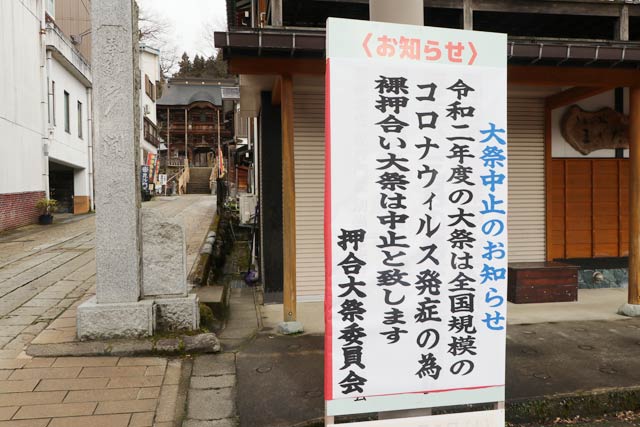 〈お知らせ〉
大祭中止のお知らせ
令和二年度の大祭は全国規模の
コロナウィルス発症の為
裸押合い大祭は中止と致します
押合大祭委員会